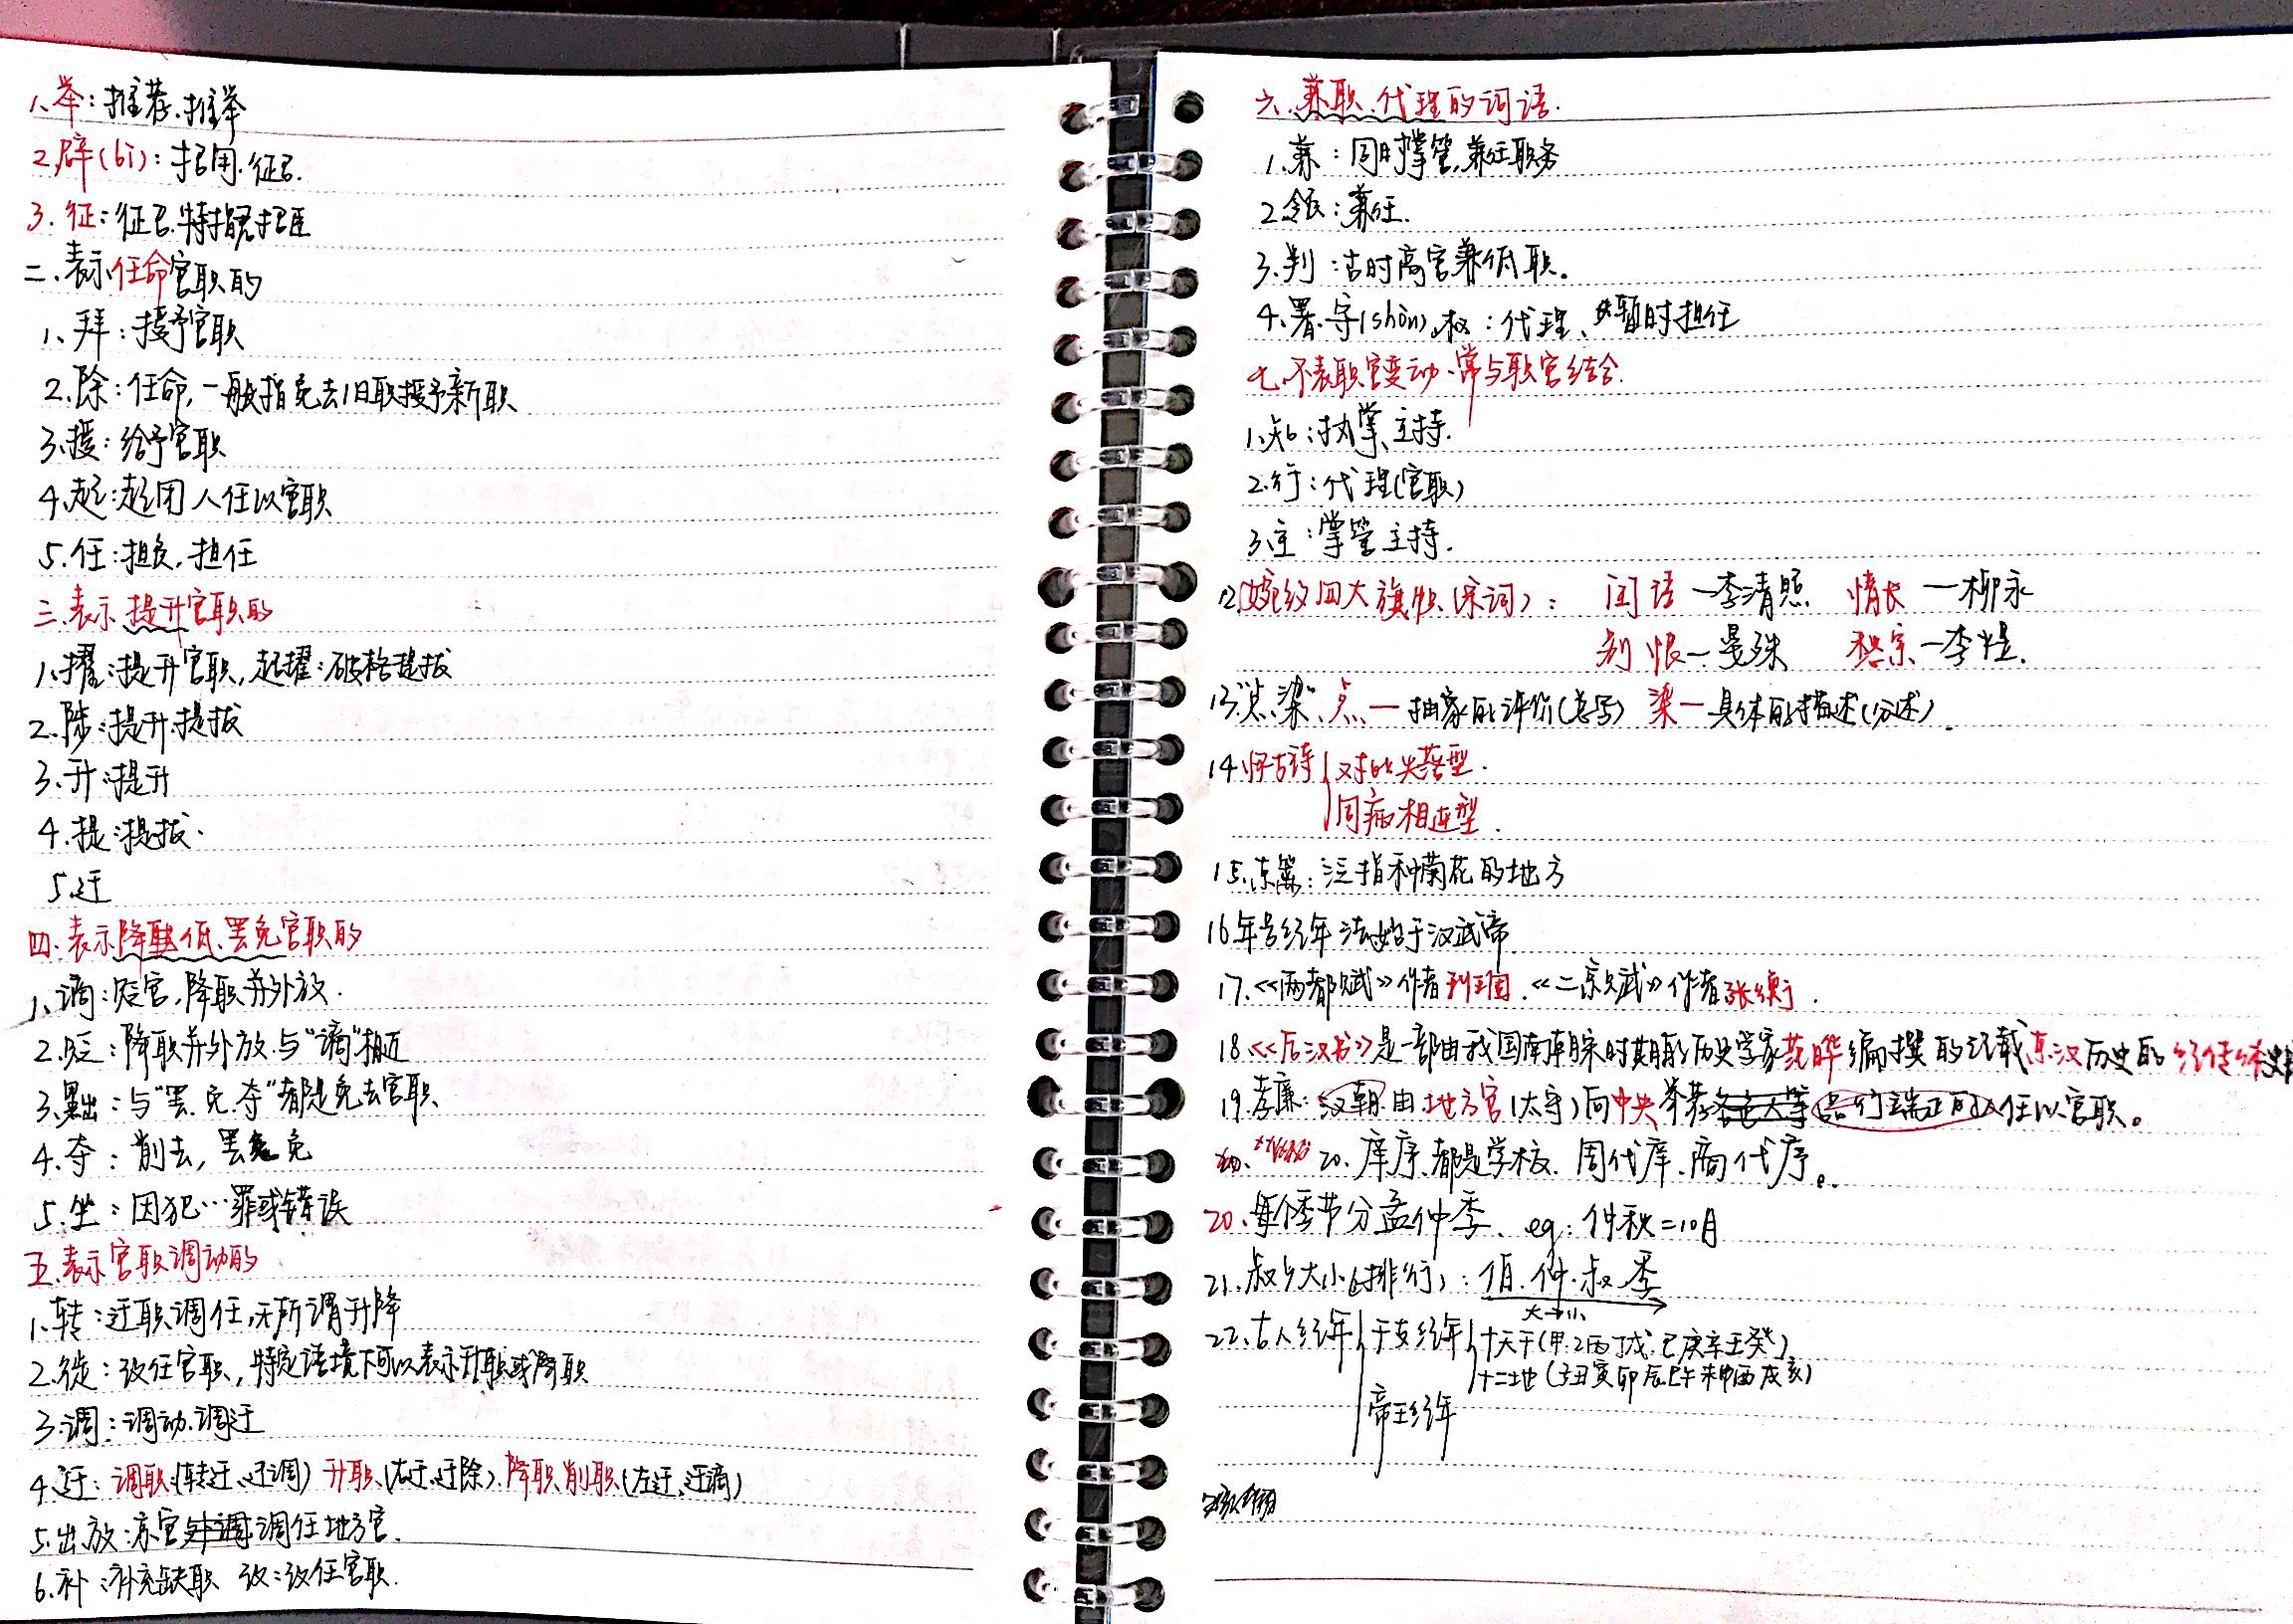 1、举：推荐、推举
2.辟(bì)：招用.征召.
3.征：征召.特指君招臣
二、表示任命官职的
1、拜：授予官职
2.除：任命,一般指免去旧职授予新职
3.授：给予官职
4.起：起用人任以官职
5.任：担负,担任
三.表示提升官职的
1.擢：提升官职,超擢：破格提拔
2.陟：提升.提拔
3.升：提升
4.提：提拔.
5.迁
四.表示降职低、罢免官职的
1、谪：贬官,降职并外放.
2.贬：降职并外放.与“谪”相近
3.黜：与“罢.免.夺”都是免去官职
4.夺：削去,罢免
5.坐：因犯…罪或错误
五.表示官职调动的
1.转：迁职调任,无所谓升降
2.徙：改任官职,特定语境下可以表示升职或降职
3.调：调动.调迁
4.迁：调职(转迁、迁调) 升职(右迁、迁除).降职、削职(左迁、迁谪)
5.出放：京官外调调任地方官.
6.补：补充缺职 改：改任官职.
六.兼职.代理的词语.
1.兼：同时掌管,兼任职务
2.领：兼任.
3.判：古时高官兼低职。
4.署.守(shǒu).权：代理、暂时担任
七.不表职官变动.常与职官结合.
1.知：执掌、主持.
2.行：代理(官职)
3.主：掌管主持.
12.婉约四大旗帜(宋词)： 闺语—李清照 情长—柳永
别恨—晏殊 愁宗—李煜.
13“点、染” 点—抽象的评价(总写) 染—具体的描述(分述).
14.怀古诗 对比失落型.
同病相连型.
15.东篱：泛指种菊花的地方
16年号纪年法始于汉武帝
17.《两都赋》作者班固.《二京赋》作者张衡.
18.《后汉书》是一部由我国南朝宋时期的历史学家范晔编撰的记载东汉历史的纪传体史
19.孝廉：汉朝.由地方官(太守)向中央举荐品行端正的人任以官职。
20.庠序.都是学校.周代庠.商代序。
20.每个季节分孟仲季. eg：仲秋=10月
21.叔与大小(排行)：伯.仲.叔.季
大→小
22.古人纪年 干支纪年 十天干(甲乙丙丁戊己庚辛壬癸)
十二地(子丑寅卯辰巳午未申酉戌亥)
帝王纪年